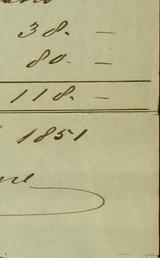 38. —
80. —
118. —
1851